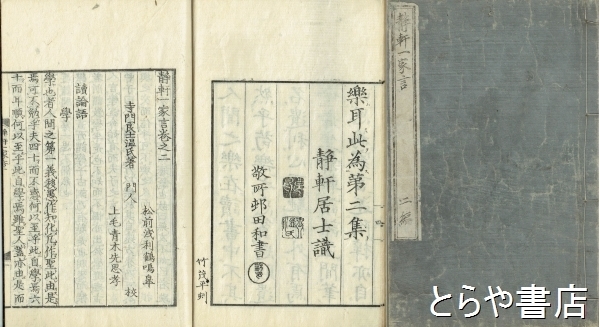 靜軒一家言 二編
樂耳此為第二集
靜軒居士識
敬所邨田和書
竹茂平刻
靜軒一家言卷之二
寺門良士温氏著 門人
松前淺利鶴鳴皐
上毛青木先思孝
校
讀論語
學
學也者人間之第一義後愚作知化凡作聖此由是
焉可不勉乎夫四十而不惑何以至乎此自學焉六
十而耳順何以至乎此自學焉雖聖人蓋亦由是而
とらや書店